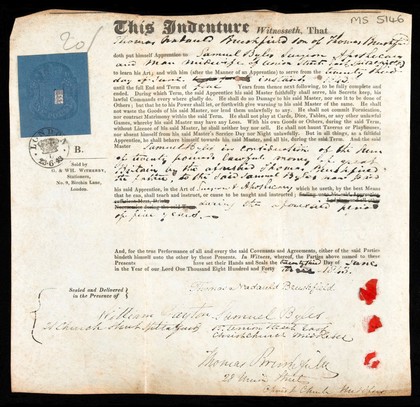 MS 5146
20/
This Indenture Witnesseth, That
Thomas Nadauld Brushfield son of Thomas Brushfield
doth put himself Apprentice to Samuel Byles Surgeon Apothecary
and Man midwife of Union Street
to learn his Art; and with him (after the Manner of an Apprentice) to serve from the twenty third
day of June
until the full End and Term of five Years from thence next following, to be fully complete and
ended. During which Term, the said Apprentice his said Master faithfully shall serve, his Secrets keep, his
lawful Commands every where gladly do. He shall do no Damage to his said Master, nor see it to be done of
Others; but that he to his Power shall let, or forthwith give warning to his said Master of the same. He shall
not waste the Goods of his said Master, nor lend them unlawfully to any. He shall not commit Fornication,
nor contract Matrimony within the said Term. He shall not play at Cards, Dice, Tables, or any other unlawful
Games, whereby his said Master may have any Loss. With his own Goods or others, during the said Term,
without Licence of his said Master, he shall neither buy nor sell. He shall not haunt Taverns or Playhouses,
nor absent himself from his said Master's Service Day nor Night unlawfully. But in all things, as a faithful
Apprentice, he shall behave himself towards his said Master, and all his, during the said Term. And the said
Master Samuel Byles in Consideration of the sum
of twenty pounds lawful money of great
Britain
the said Samuel Byles
his said Apprentice, in the Art of Surgeon & Apothecary which he useth, by the best Means
that he can, shall teach and instruct, or cause to be taught and instructed;
during the aforesaid period
of five years
And, for the true Performance of all and every the said Covenants and Agreements, either of the said Parties
bindeth himself unto the other by those Presents. In Witness, whereof, the Parties above named to these
Presents have set their Hands and Seals the twenty third Day of June
in the Year of our Lord One Thousand Eight Hundred and Forty three 1843
B.
Sold by
Stationers,
No. 9, Birchin Lane,
London.
Sealed and Delivered
in the Presence of
Thomas Nadauld Brushfield
William
Samuel Byles
Church Street Spitalfields
Union Street East
Thomas Brushfield
28 Union Street